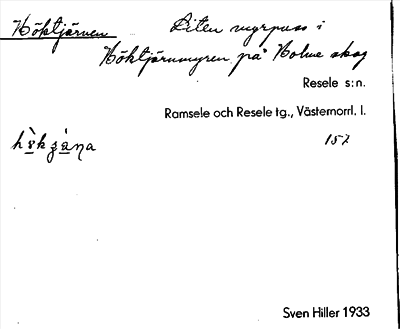 Höktjärnen Liten myrpuss i
Höktjärnmyren på Holme skog
Resele s:n.
Ramsele och Resele tg., Västernorrl. l.
157
Sven Hiller 1933